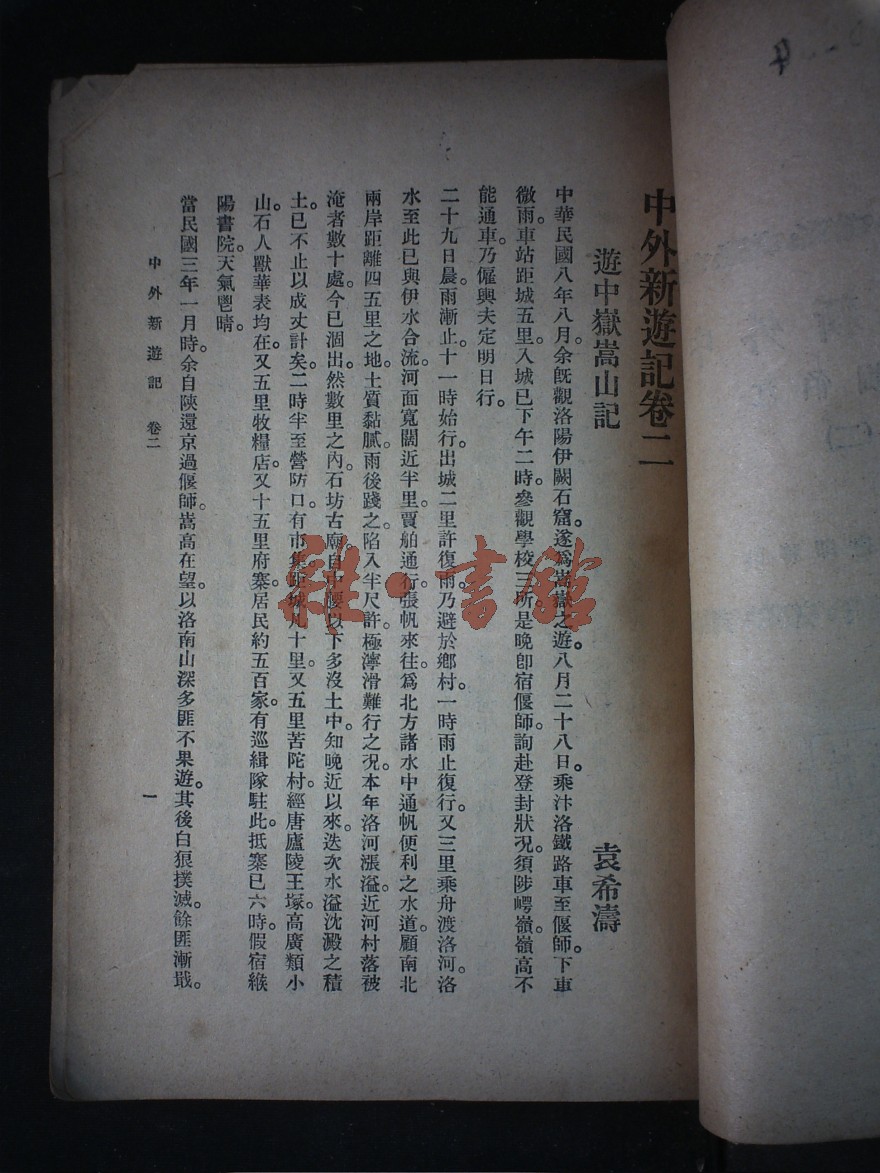 中外新遊記卷二
遊中嶽嵩山記
袁希濤
中華民國八年八月。余既觀洛陽伊闕石窟。遂爲嵩嶽之遊。八月二十八日。乘汴洛鐵路車至偃師。下車
微雨。車站距城五里。入城已下午二時。參觀學校三所。是晚卽宿偃師。詢赴登封狀況。須陟崿嶺。嶺高不
能通車。乃僱輿夫定明日行。
二十九日晨。雨漸止。十一時始行。出城二里許復雨。乃避於鄉村。一時雨止復行。又三里乘舟渡洛河。洛
水至此已與伊水合流。河面寬闊近半里。賈舶通行。張帆來往。爲北方諸水中通帆便利之水道。顧南北
兩岸距離四五里之地。土質黏膩。雨後踐之。陷入半尺許。極濘滑難行之況。本年洛河漲溢。近河村落被
淹者數十處。今已涸出。然數里之內。石坊古廟自中腰以下多沒土中。知晚近以來。迭次水溢沈澱之積
土。已不止以成丈計矣。二時半至營防口。有市集。距城凡十里。又五里苦陀村。經唐廬陵王塚。高廣類小
山。石人獸華表均在。又五里牧糧店。又十五里府寨。居民約五百家。有巡緝隊駐此。抵寨已六時。假宿緱
陽書院。天氣鬯晴。
當民國三年一月時。余自陝還京。過偃師。嵩高在望。以洛南山深多匪。不果遊。其後白狼撲滅。餘匪漸戢。
中外新遊記 卷二
一
雜·書館
4